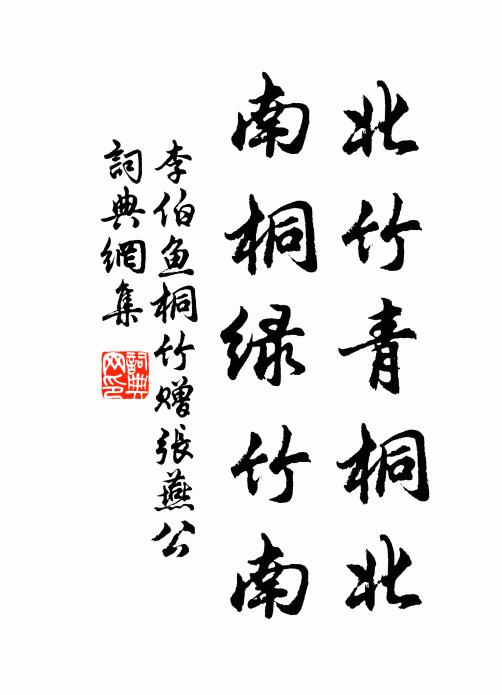 北竹青桐北
南桐绿竹南
李伯鱼桐竹赠张燕公
詞典網集
詞典网印